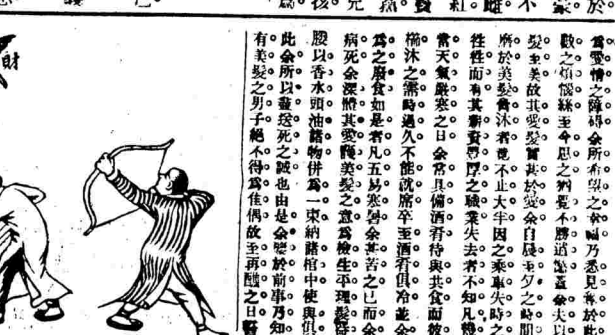 為愛情之障碍余所希望之幸福乃悉見奪於此
數之煩惱絲至今思之猶覺不勝遺憾蓋余夫以
髮至美故其愛髮實甚於愛余自晨至夕之時間
磨於美髮膏沐者竟不止大半因之乘車失時之
往往而有其薪資豐厚之職業失去者不知凡幾
當天氣嚴寒之日余常具備酒肴待與共食而彼
櫛沐之需時過久不能就席卒至酒肴俱冷並余
為之廢食如是者凡五易寒暑余甚苦之已而余
病死余深體其愛護美髮之意為檢生平理髮
以香水頭油諸物併為一束納諸棺中使與俱
此余所以盡送死之誠也由是余鑒於前事乃知
有美髮之男子絕不得為佳偶故至再醮之日
財